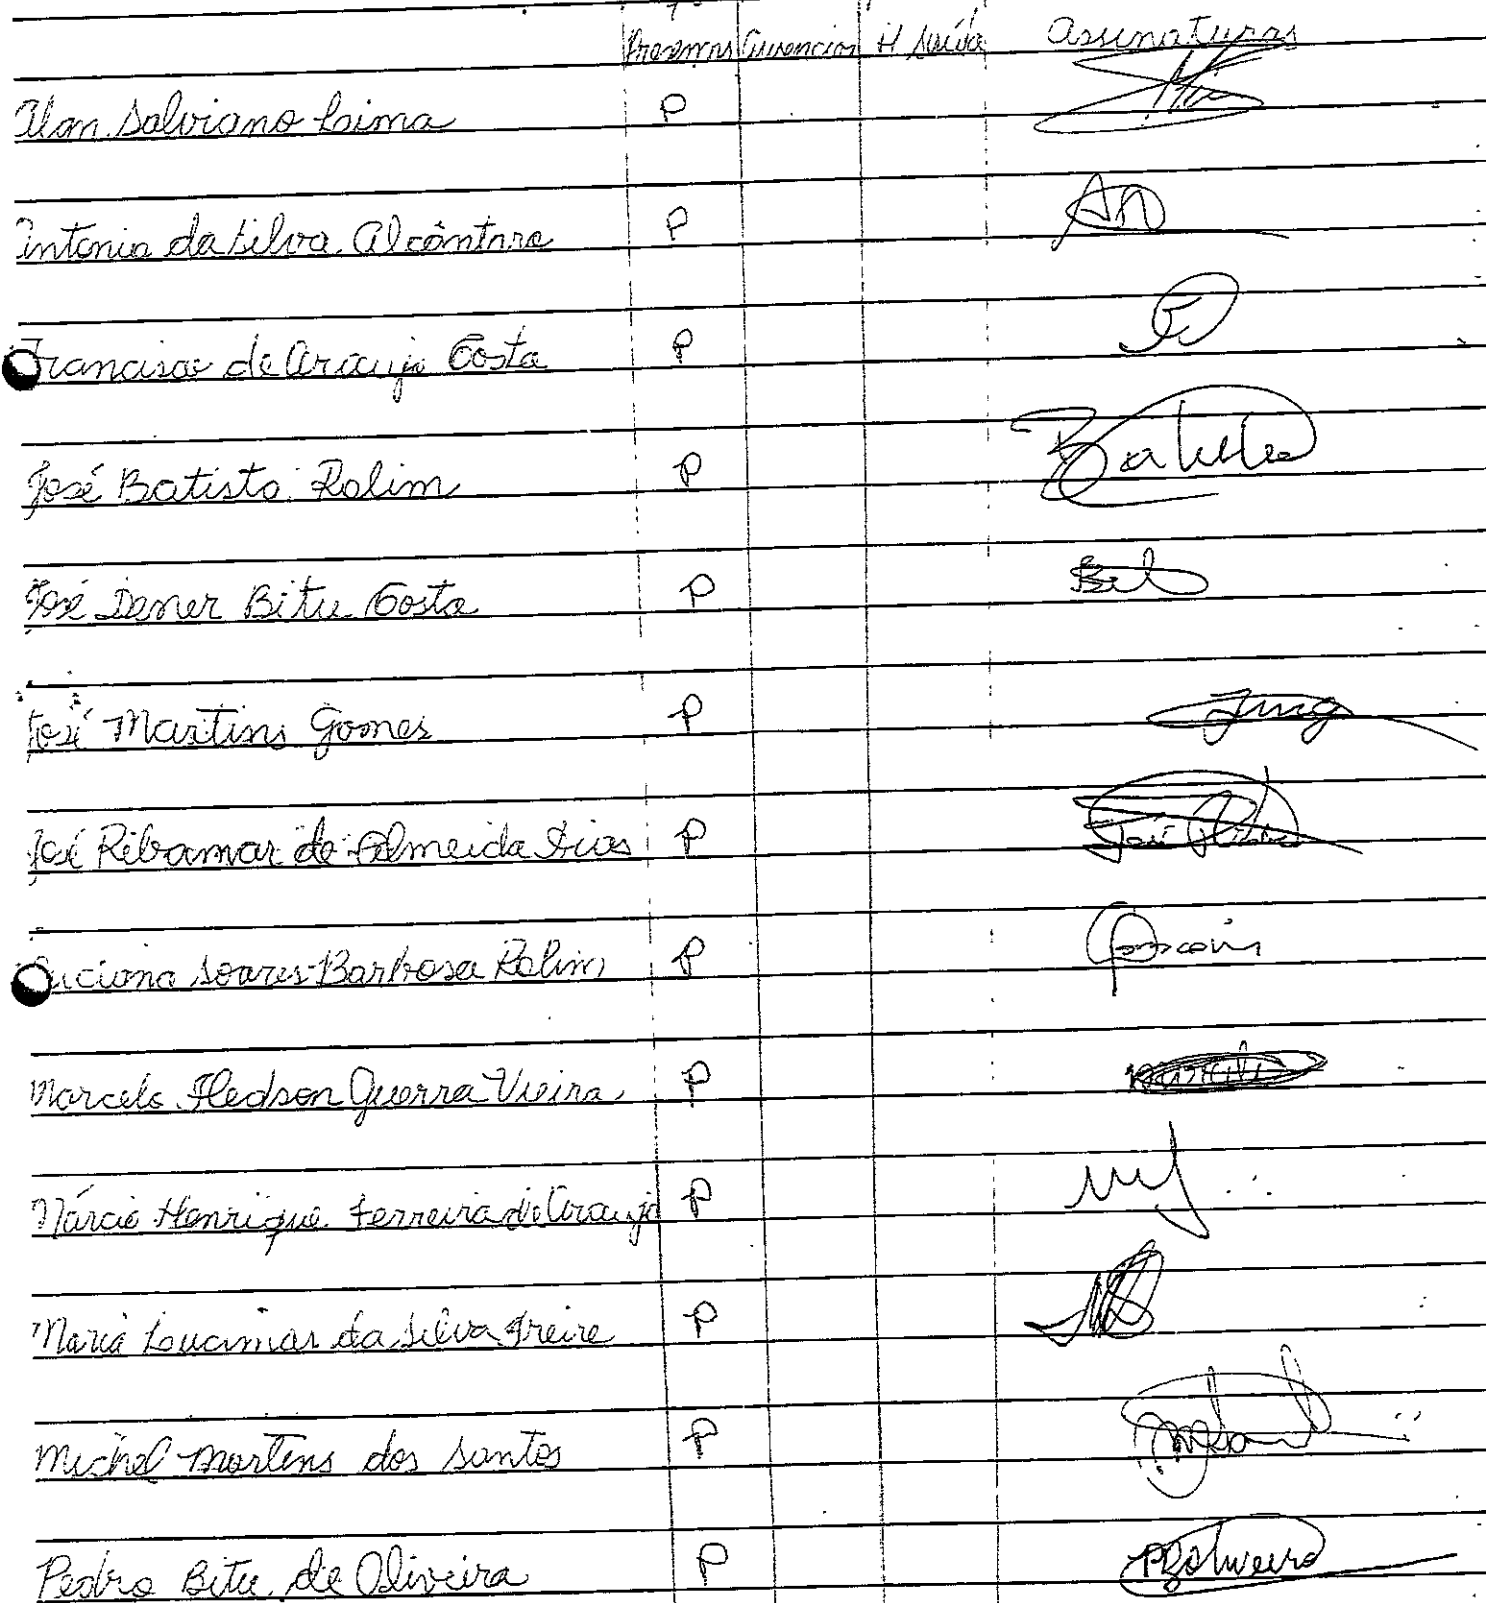 Presenças Ausencias H Saída Assinaturas
Alan Salviano Lima P
Antonia da Silva Alcântara P
Francisco de Araujo Costa P
José Batista Rolim P Batista
José Demer Bitu Costa P
José Martins Gomes P
José Ribamar de Almeida Dias P José
Luciana Soares Barbosa Rolim P
Marcelo Fledson Guerra Vieira P
Márcio Henrique Ferreira de Araujo P
Maria Lucimar da Silva Freire P
Michel Martins dos Santos P
Pedro Bitu de Oliveira P PBOliveira